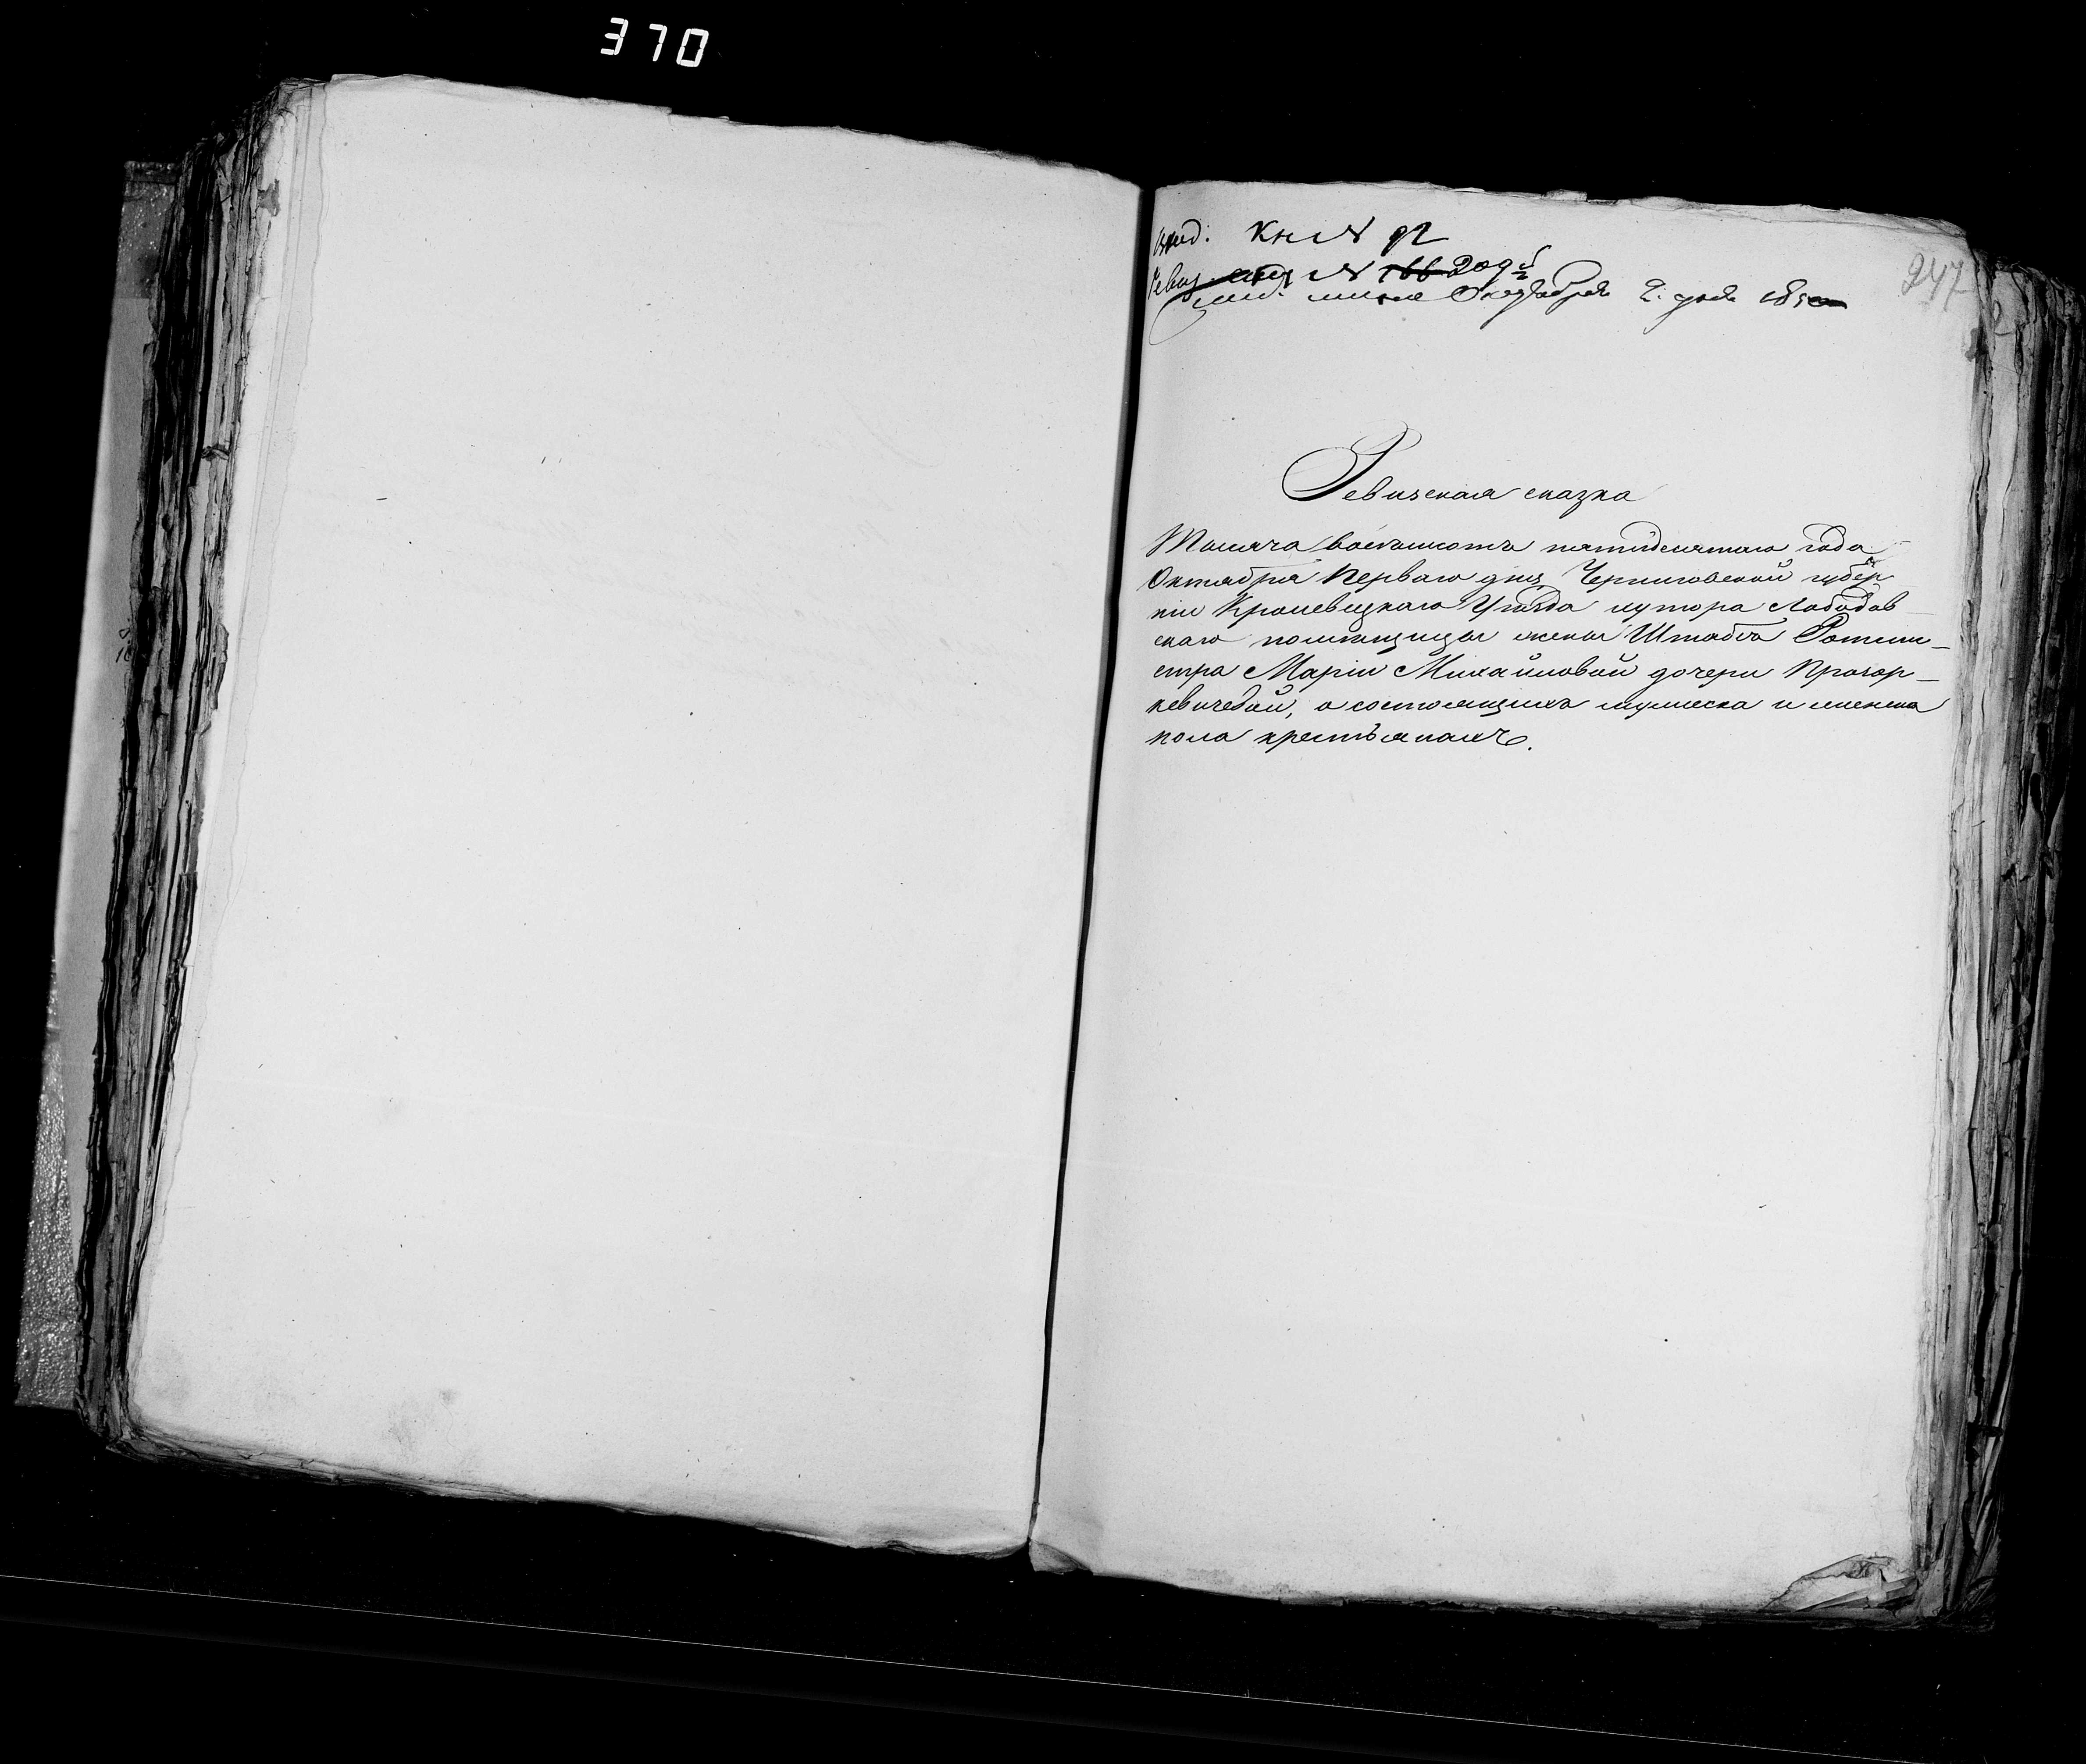 370
Кн № 92
Ревиз. № 166 209
Октября 2. дня 1850
247
Ревизская сказка
Тысяча восемьсотъ пятидесятаго года
Октября Перваго дня, Черниговской губер
ніи Кролевецкаго Уѣзда хутора Лободов
скаго помѣщицы жены Штабсъ Ротми-
стра Маріи Михайловой дочери
о состоящихъ мужеска и женска
пола крестьянахъ.